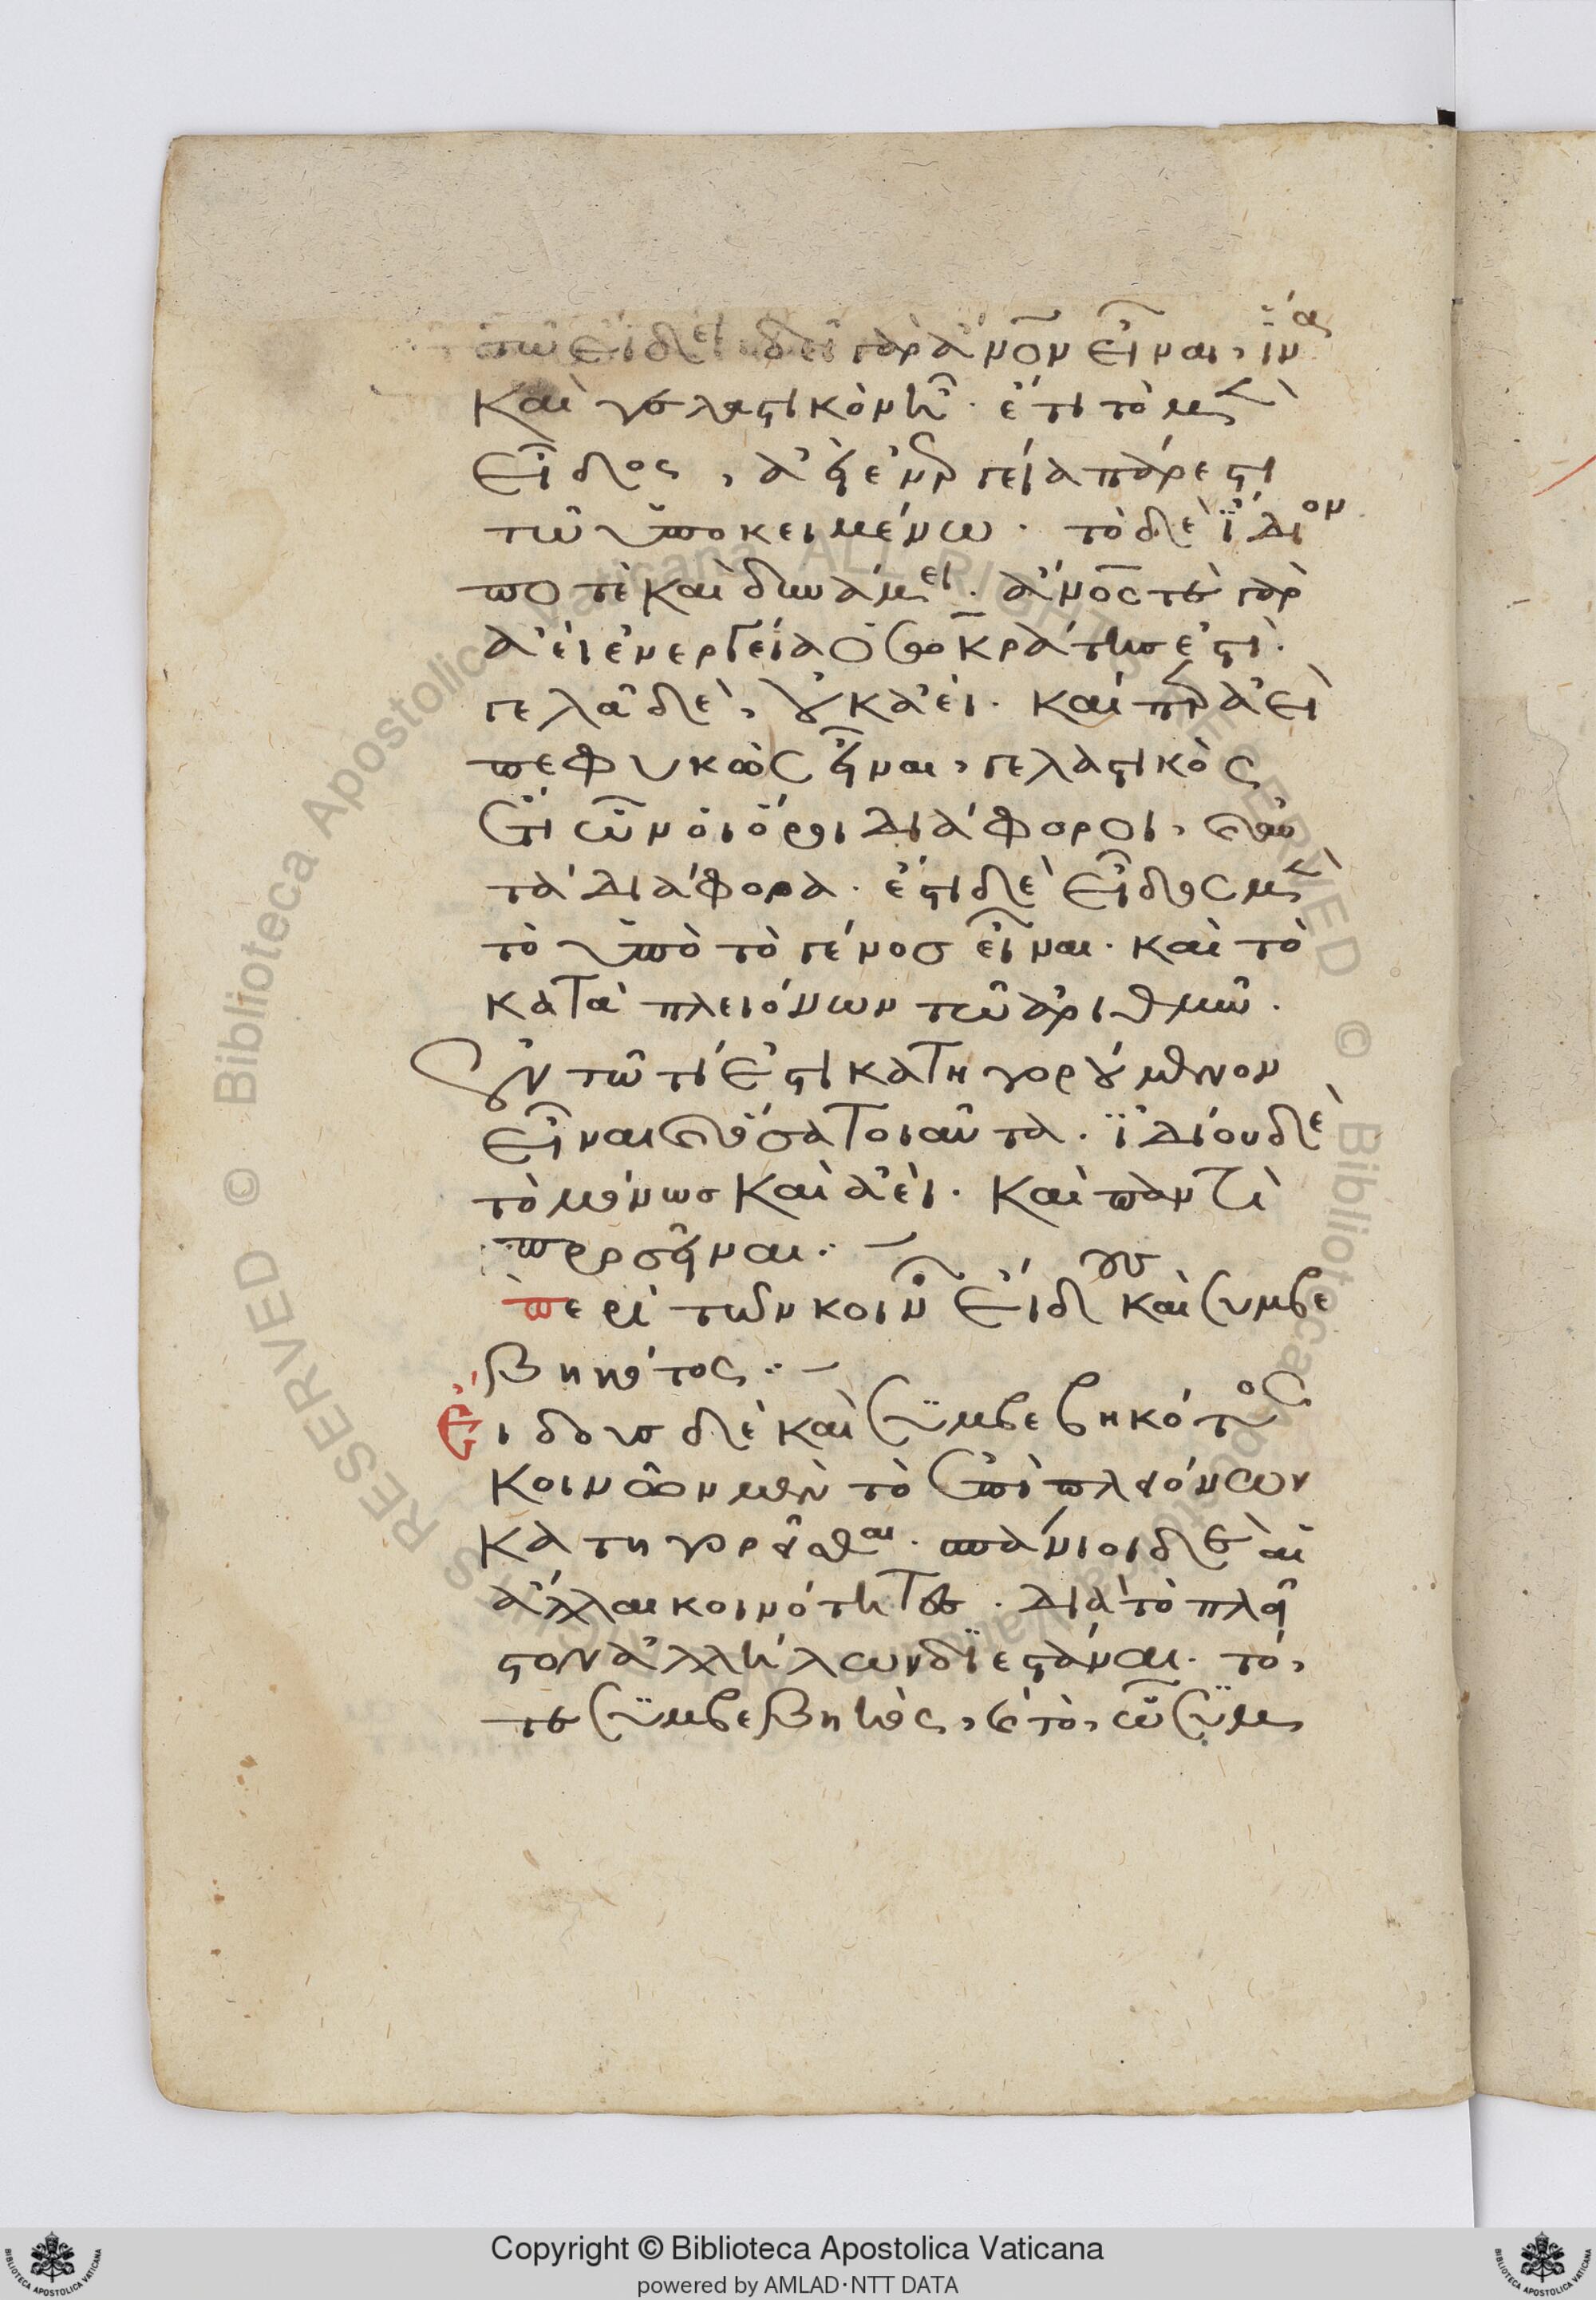 τῶ εἴδει. δεῖ γὰρ ἄνον εἶναι, ἵνα
καὶ γελαστικὸν ἦ. ἔτι τὸ μὲν
εἶδος, ἀεὶ ἐνεργεία πάρεστι
τῶ ὑποκειμένω. τὸ δὲ ἴδιον
ποτὲ καὶ δυνάμει. ἄνος τε γὰρ
ἀεὶ ἐνεργεία ὁ σωκράτησ ἐστὶ.
γελᾶ δὲ, οὐκ ἀεὶ. καίπερ ἀεὶ
πεφυκὼς εἶναι, γελαστικὸς
ἔτι ὧν οἱ ὅροι διάφοροι, καὶ αὐ
τὰ διάφορα. ἔστι δὲ εἶδους μὲν
τὸ ὑπὸ τὸ γένοσ εἶναι. καὶ τὸ
κατὰ πλειόνων τῶ ἀριθμῶ.
ἐν τῶ τί ἐστι κατηγορούμενον
εἶναι καὶ ὅσα τοιαῦτα. ἰδίου δὲ
τὸ μόνωσ καὶ ἀεὶ. καὶ παντὶ
προσεῖναι.
περὶ τῶν κοινῶν εἴδους καὶ συμβε
βηκότος
Εἴδουσ δὲ καὶ συμβεβηκότος
κοινὸν μὲν τὸ ἐπὶ πλειόνων
κατηγορεῖσθαι. σπάνιοι δὲ αἱ
ἄλλαι κοινότητες. διὰ τὸ πλεῖ
στον ἀλλήλων διεστάναι. τό,
τε συμβεβηκὸς, καὶ τὸ, ὧ συμ
Copyright © Biblioteca Apostolica Vaticana
powered by AMLAD·NTT DATA